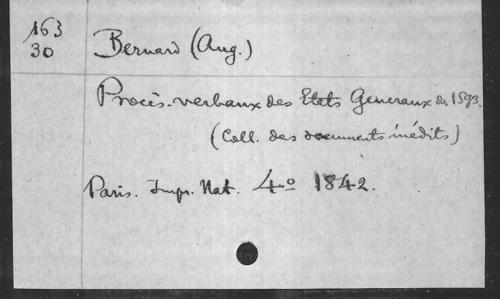 163
30
Bernard (Aug.)
Procès-verbaux des Etats Generaux de 1593.
(Coll. des documents inédits)
Paris. Impr. Nat. 4º 1842.